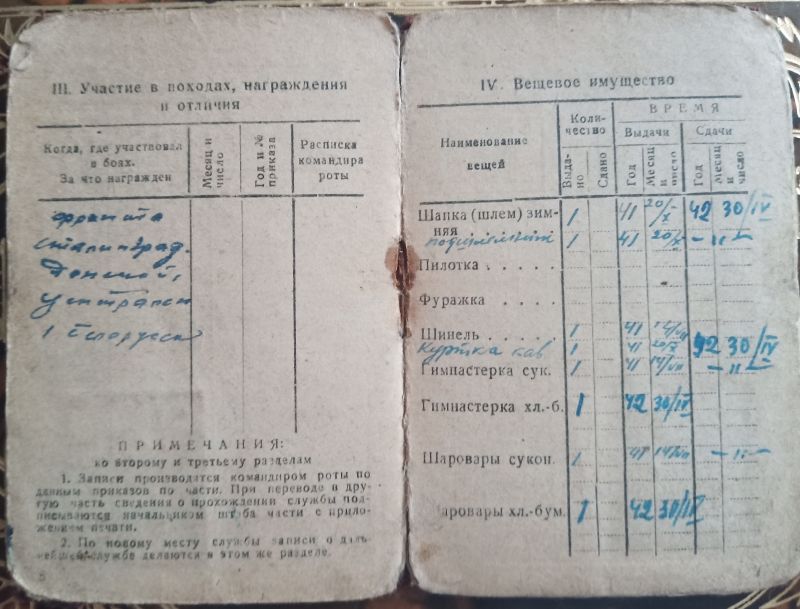 III. Участие в походах, награждения
и отличия
Когда, где участвовал
в боях.
За что награжден
Месяц и
число
Год и №
приказа
Расписка
командира
роты
фронта
Сталинград.
Донской,
Централн
1 Белорусск
ПРИМЕЧАНИЯ:
ко второму и третьему разделам
1. Записи производятся командиром роты по
данным приказов по части. При переводе в дру-
гую часть сведения о прохождении службы под-
писываются начальником штаба части с прило-
жением печати.
2. По новому месту службы записи о даль-
нейшей службе делаются в этом же разделе.
5
IV. Вещевое имущество
Наименование
вещей
Коли-
чество
ВРЕМЯ
Выдачи
Сдачи
Выда-
но
Сдано
Год
Месяц
и
число
Год
Месяц
и
число
Шапка (шлем) зим-
няя 1 41 20/X 42 30/IV
подшлемник 1 41 20/X — " —
Пилотка . . . . .
Фуражка . . . .
Шинель . . . . 1 41 14/VII
Куртка ват 1 41 20/X 42 30/IV
Гимнастерка сук. 1 41 14/VII — " —
Гимнастерка хл.-б. 1 42 30/IV
Шаровары сукон. 1 41 14/VII — " —
Шаровары хл.-бум. 1 42 30/IV